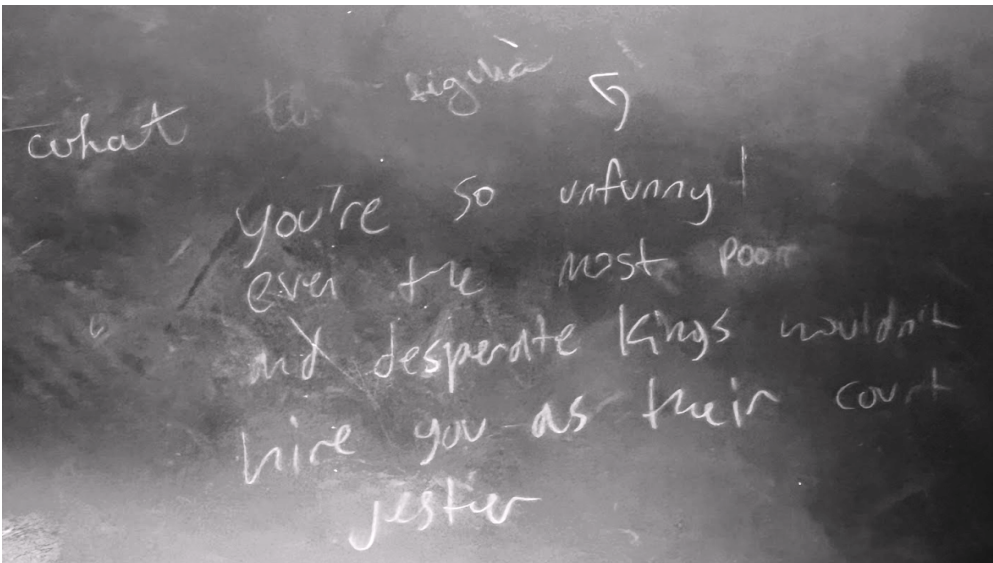 what the sigma
you're so unfunny!
even the most poor
and desperate kings wouldn't
hire you as their court
jester